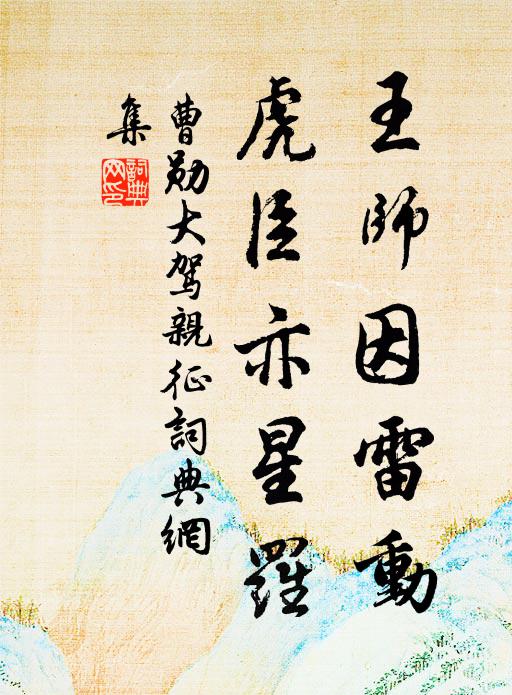 王師因雷動
虎臣亦星羅
曹勛大駕親征詞典網
集
詞典
网印